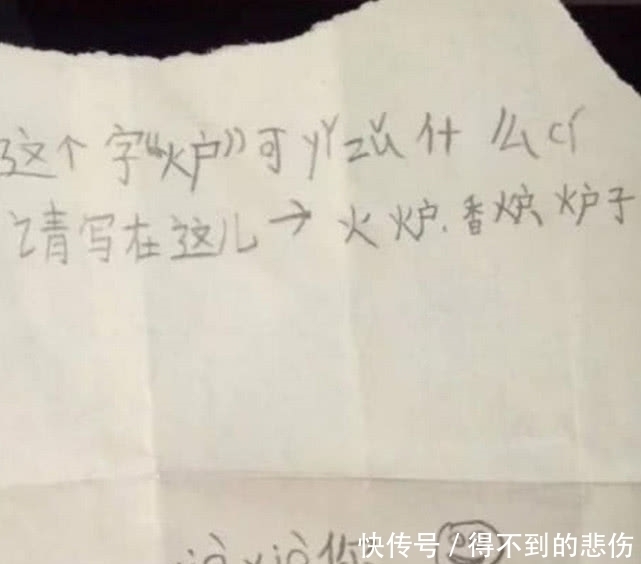 这个字“炉”可yǐzǔ什么cí
请写在这儿→火炉.香炉.炉子
xiè你
快传号/得不到的悲伤